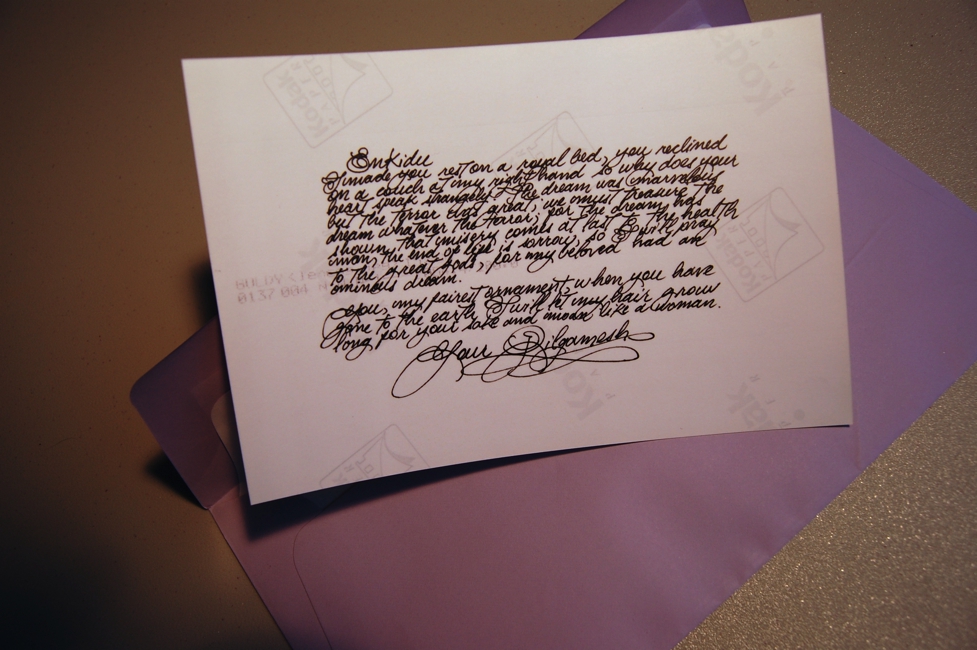 Enkidu
I made you rest on a royal bed, you reclined
on a couch at my right hand so why does your
heart speak strangely? The dream was marvelous
but the terror was great; we must treasure the
dream whatever the terror; for the dream has
shown that misery comes at last to the health
man, the end of life is sorrow, so I will pray
to the great gods, for my beloved had an
ominous dream.
you, my fairest ornament, when you have
gone to the earth I will let my hair grow
long for your sake and moan like a woman.
Your Gilgamesh
0137 004
Kodak
Kodak
Kodak
Kodak